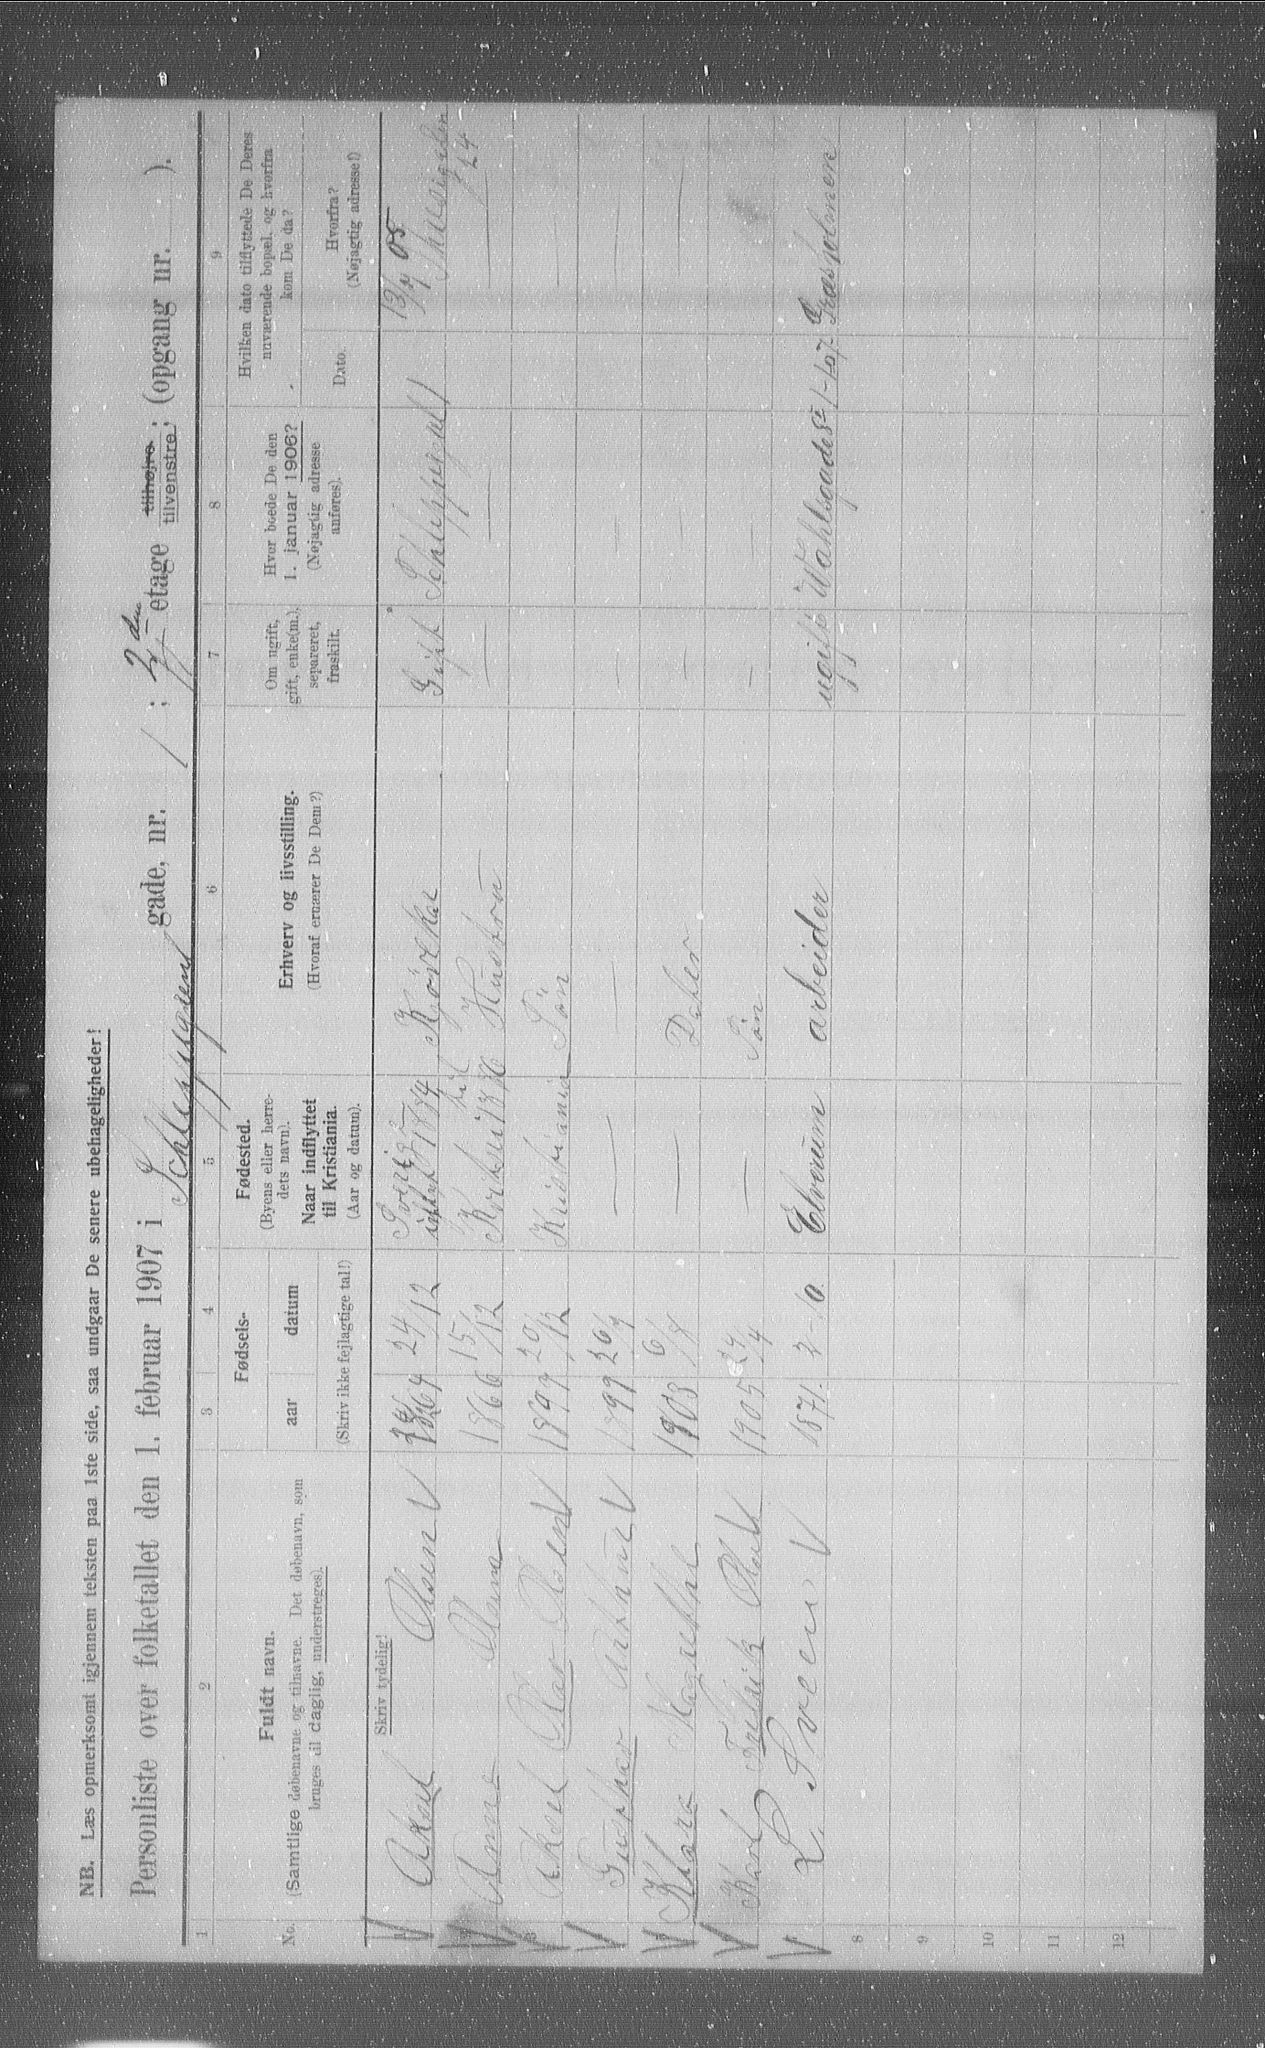 NB. Læs opmerksomt igjennem teksten paa 1ste side, saa undgaar De senere ubehageligheder!
Personliste over folketallet den 1. februar 1907 i Schleppegrens gade, nr. 1 ; 2 den etage tilhøjre tilvenstre ; (opgang nr. ).
1 2 3 4 5 6 7 8 9
No.
Fuldt navn.
(Samtlige døbenavne og tilnavne. Det døbenavn, som
bruges til daglig, understreges).
Fødsels-
aar datum
(Skriv ikke fejlagtige tal!)
Fødested.
(Byens eller herre-
dets navn).
Naar indflyttet
til Kristiania.
(Aar og datum).
Erhverv og livsstilling.
(Hvoraf ernærer De Dem?)
Om ugift,
gift, enke(m.),
separeret,
fraskilt.
Hvor boede De den
1. januar 1906?
(Nøjagtig adresse
anføres).
Hvilken dato tilflyttede De Deres
nuværende bopæl, og hvorfra
kom De da?
Dato.
Hvorfra?
(Nøjagtig adresse!)
Skriv tydelig!
1 Aksel Olsen 1864 24/12 Sverige 1884 Gift 13/4 05
Anna Olsena 1866 15/12 Hustru —
3 Aksel Olav Olsen 1897 20/12 Kristiania Søn
Gusthav Arthur 1899 26/9 — — — —
Klara Margrethe 1903 6/9 — Dater — —
Karl Fredrik Olaf 1905 24/4 — Søn —
L. Sveen 1871. 2-10. Elverum arbeider ugift Wahlsgade 8 1-1 07. Græsholmen
8
9
10
11
12